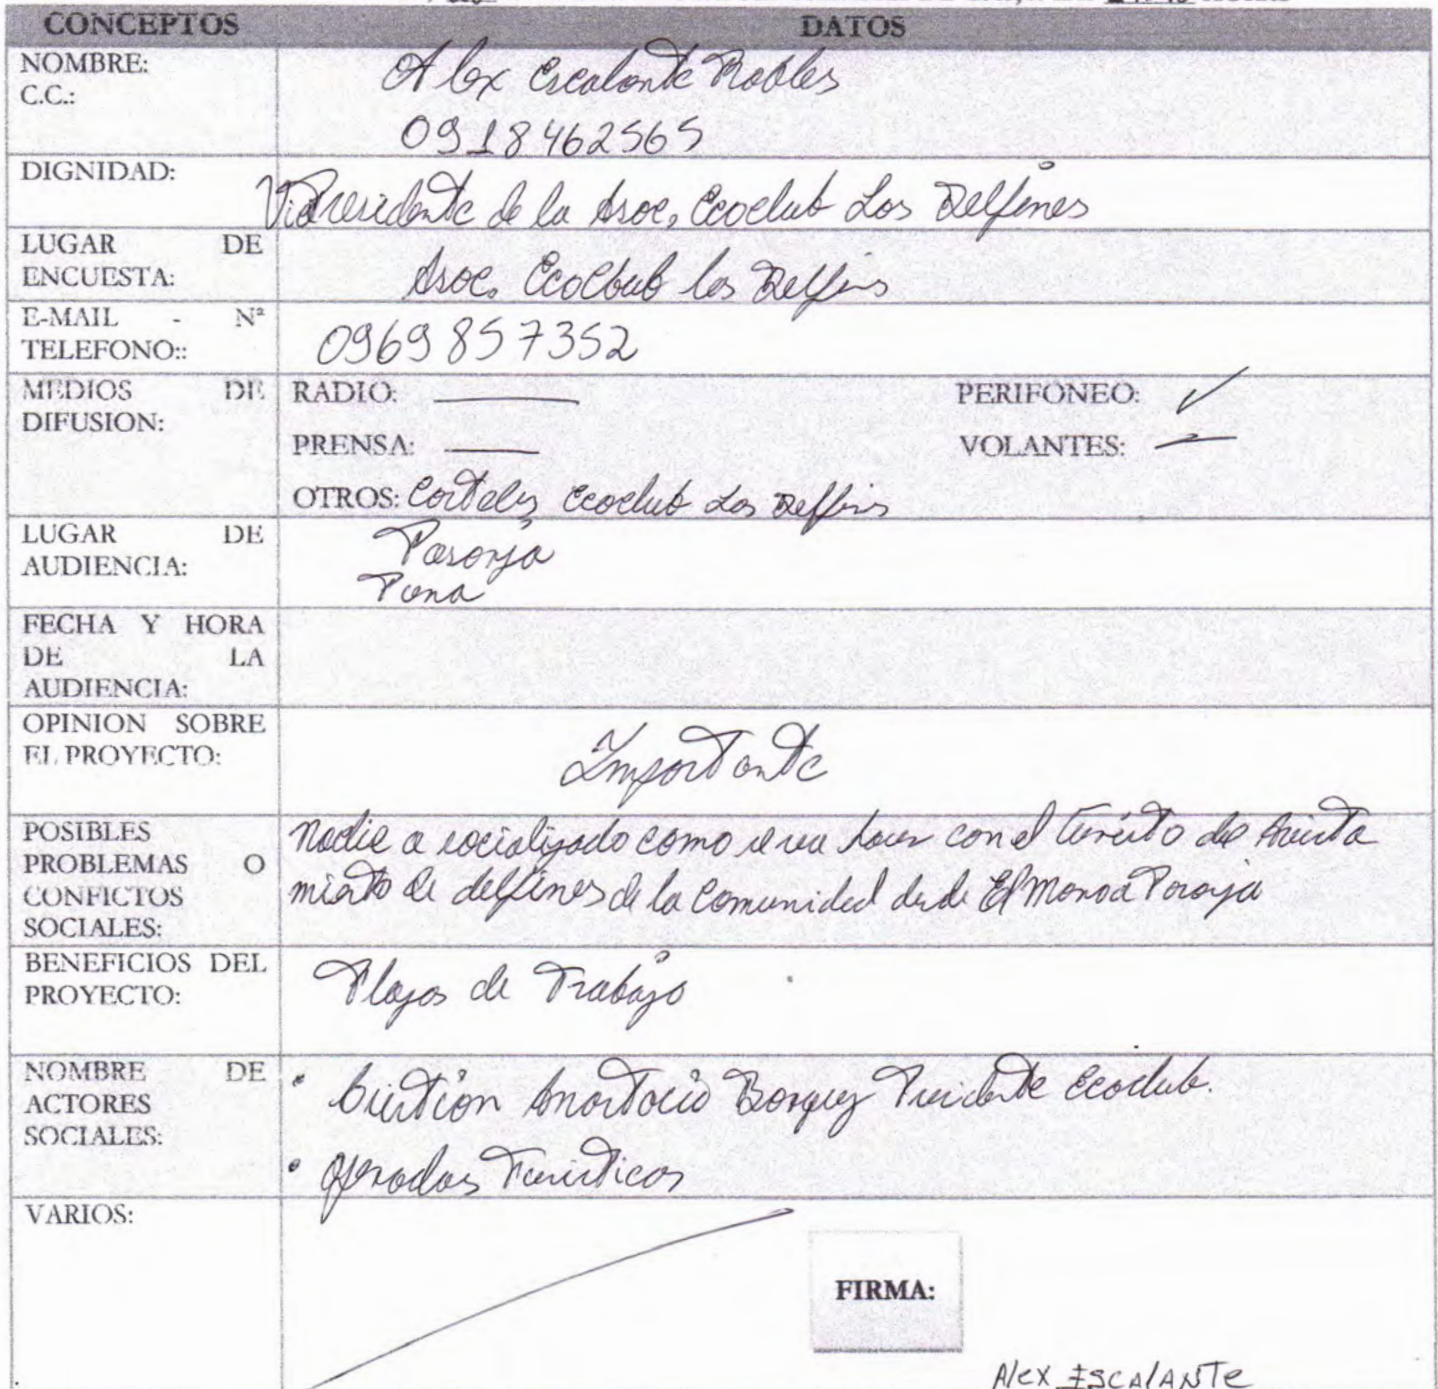 CONCEPTOS DATOS
NOMBRE: Alex Escalante Robles
C.C.: 0918462565
DIGNIDAD: Vicepresidente de la Asoc. Ecoclub Los Delfines
LUGAR DE
ENCUESTA: Asoc. Ecoclub los Delfins
E-MAIL - Nª
TELEFONO:: 0969857352
MEDIOS DE
DIFUSION:
RADIO: PERIFONEO: ✓
PRENSA: VOLANTES:
OTROS: Carteles Ecoclub Los Delfins
LUGAR DE
AUDIENCIA:
Posorja
Puna
FECHA Y HORA
DE LA
AUDIENCIA:
OPINION SOBRE
EL PROYECTO: Importante
POSIBLES
PROBLEMAS O
CONFICTOS
SOCIALES:
Nadie a socializado como se va hacer con el de
miento de delfines de la Comunidad desde El Morro a Posorja
BENEFICIOS DEL
PROYECTO: Plazas de Trabajo
NOMBRE DE
ACTORES
SOCIALES:
• Presidente Ecoclub.
• Turisticos
VARIOS:
FIRMA:
Alex ESCALANTE